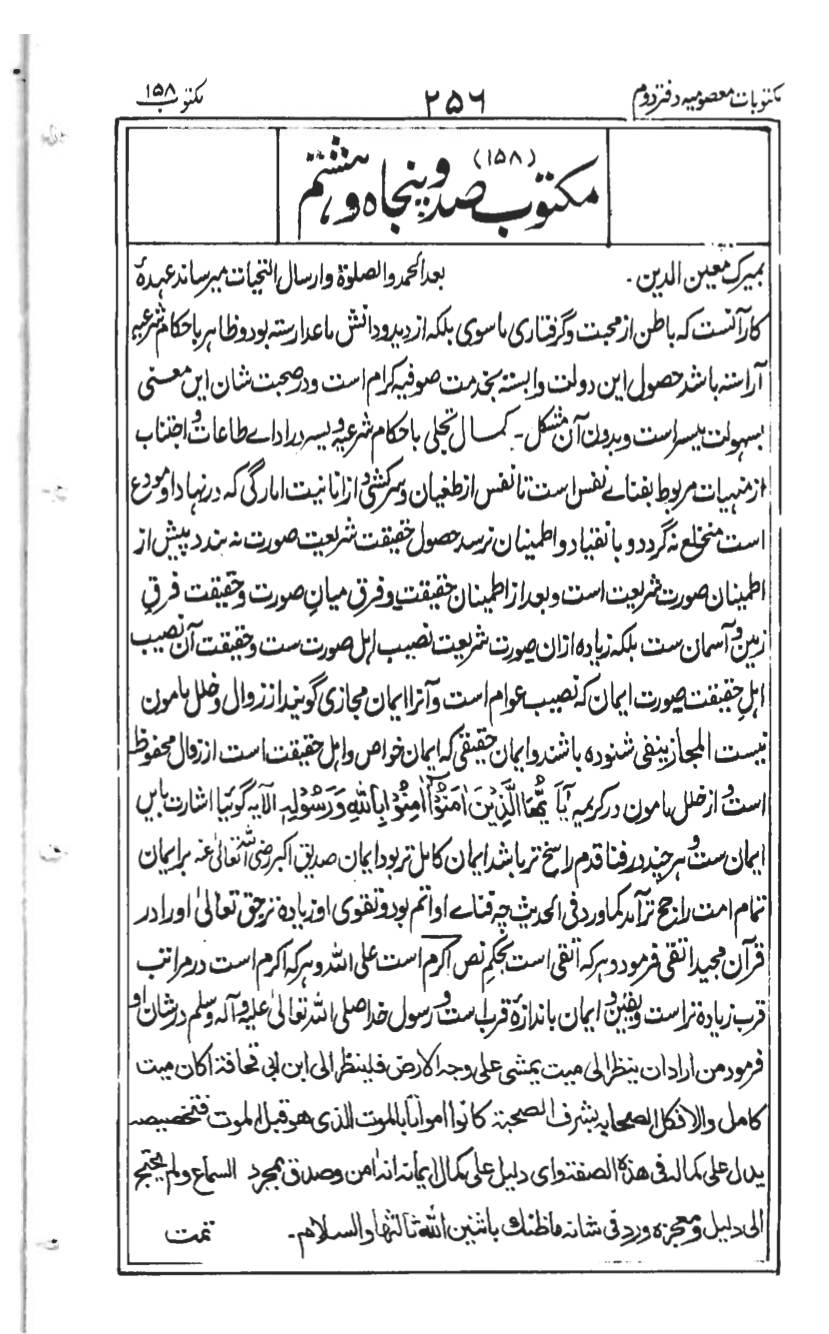 مکتوبات معصومیہ دفتر دوم
۲۵۶
مکتوب ۱۵۸
(۱۵۸)
مکتوب صد و پنجاہ و ہشتم
بمیرک معین الدین - بعد الحمد والصلوۃ وارسال التحیات میرساند عہدہٴ
کار آنست کہ باطن از محبت و گرفتاری ماسوی بلکہ از دید و دانش ماعدا رستہ بود و ظاہر باحکام شرعیہ
آراستہ باشد حصول این دولت وابستہ بخدمت صوفیہ کرام است و در صحبت شان این معنی
بسہولت میسر است و بدون آن مشکل - کمال تجلی باحکام شرعیہ و یسر در اداے طاعات و اجتناب
از منہیات مربوط بفناے نفس است تا نفس از طغیان و سرکشی و از انانیت امارگی کہ در نہاد او مودع
است منخلع نہ گردد و بانقیاد و اطمینان نرسد حصول حقیقت شریعت صورت نہ بندد پیش از
اطمینان صورت شریعت است و بعد از اطمینان حقیقت و فرق میانِ صورت و حقیقت فرقِ
زمین و آسمان ست بلکہ زیادہ ازان صورت شریعت نصیب اہل صورت ست و حقیقت آن نصیب
اہلِ حقیقت صورت ایمان کہ نصیب عوام است و آنرا ایمان مجازی گویند از زوال و خلل مامون
نیست المجاز ینفی شنودہ باشند و ایمان حقیقی کہ ایمان خواص و اہل حقیقت است از زوال محفوظ
است و از خلل مامون در کریمہ یٰۤاَیُّہَا الَّذِیۡنَ اٰمَنُوۡۤا اٰمِنُوۡا بِاللّٰہِ وَرَسُوۡلِہٖ الآیہ گوئیا اشارت بایں
ایمان ست و ہر چند در فنا قدم راسخ تر باشد ایمان کامل تر بود ایمان صدیق اکبر رضی اللہ تعالیٰ عنہ بر ایمان
تمام امت راجح تر آمد کما ورد فی الحدیث چہ فناے او اتم بود و تقوی او زیادہ تر حق تعالیٰ او را در
قرآن مجید اتقی فرمود و ہر کہ اتقی است بحکمِ نص اکرم است علی اللہ و ہر کہ اکرم است در مراتب
قرب زیادہ تر است و یقین و ایمان باندازہٴ قرب است و رسول خدا صلی اللہ تعالیٰ علیہ و آلہ وسلم در شان او
فرمود من اراد ان ینظر الی میت یمشی علی وجہ الارض فلینظر الی ابن ابی قحافۃ اکان میت
کامل والا فکل الصحابہ بشرف الصحبۃ کانوا امواتا بالموت الذی ھو قبل الموت فتخصیصہ
یدل علی کمالہ فی ھذہ الصفتہ وای دلیل علی کمال ایمانہ انہ اٰمن وصدق بمجرد السماع ولم یحتج
الی دلیل و معجزہ ورد فی شانہ ماظنک باثنین اللّٰہ ثالثھا والسلام - تمت